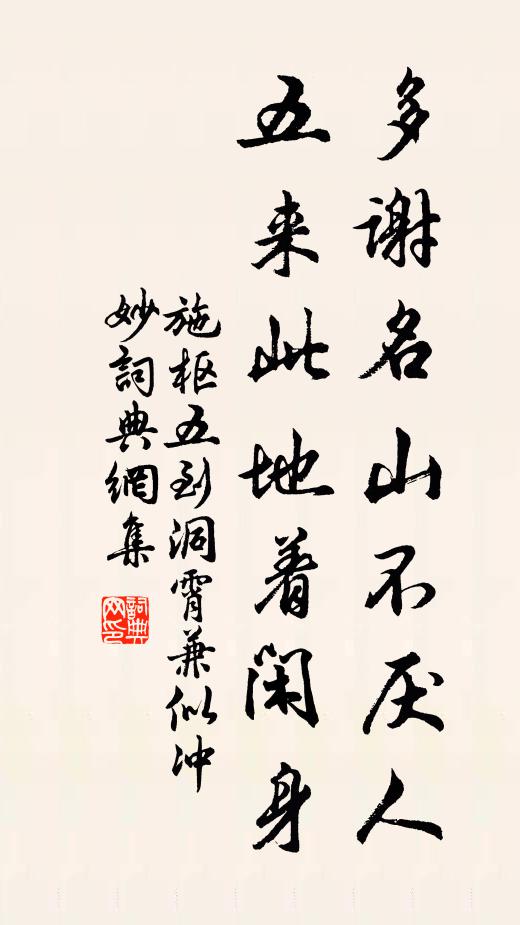 多谢名山不厌人
五来此地着闲身
施枢五到洞霄兼似冲
妙詞典網集
詞典
网印